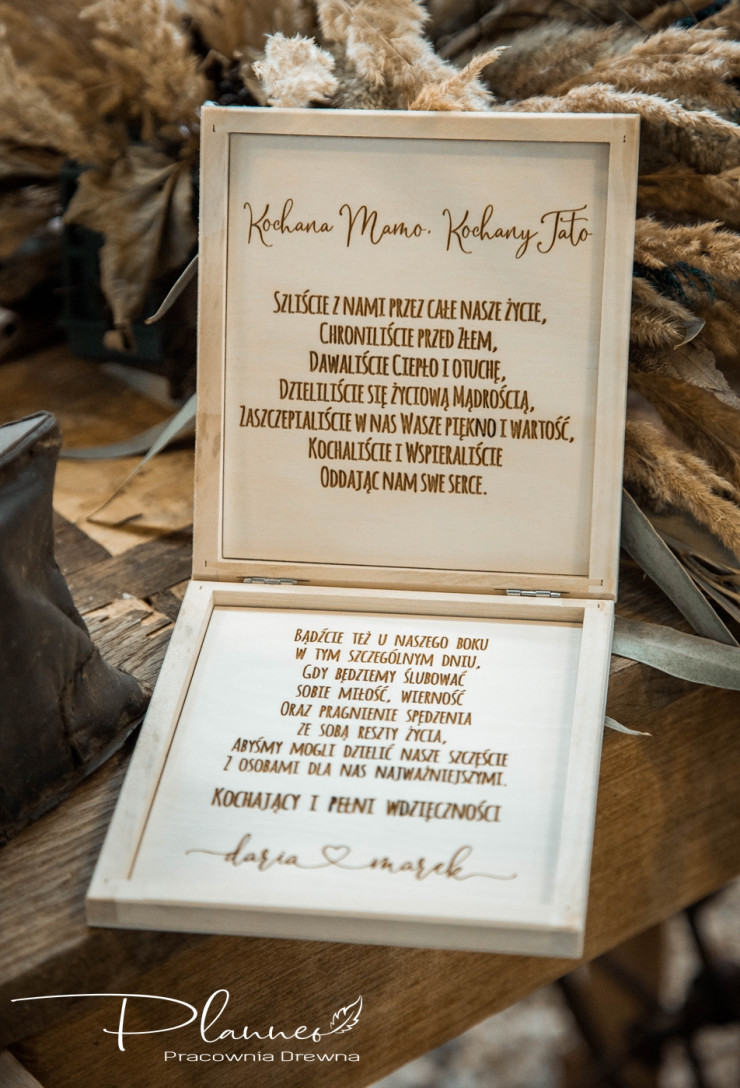 Kochana Mamo, Kochany Tato
Szliście z nami przez całe nasze życie,
Chroniliście przed złem,
Dawaliście Ciepło i otuchę,
Dzieliliście się życiową Mądrością,
Zaszczepialiście w nas Wasze piękno i wartość,
Kochaliście i Wspieraliście
Oddając nam swe serce.
Bądźcie też u naszego boku
w tym szczególnym dniu,
Gdy będziemy ślubować
sobie miłość, wierność
Oraz pragnienie spędzenia
ze sobą reszty życia,
Abyśmy mogli dzielić nasze szczęście
z osobami dla nas najważniejszymi.
Kochający i pełni wdzięczności
daria marek
Planneo
Pracownia Drewna